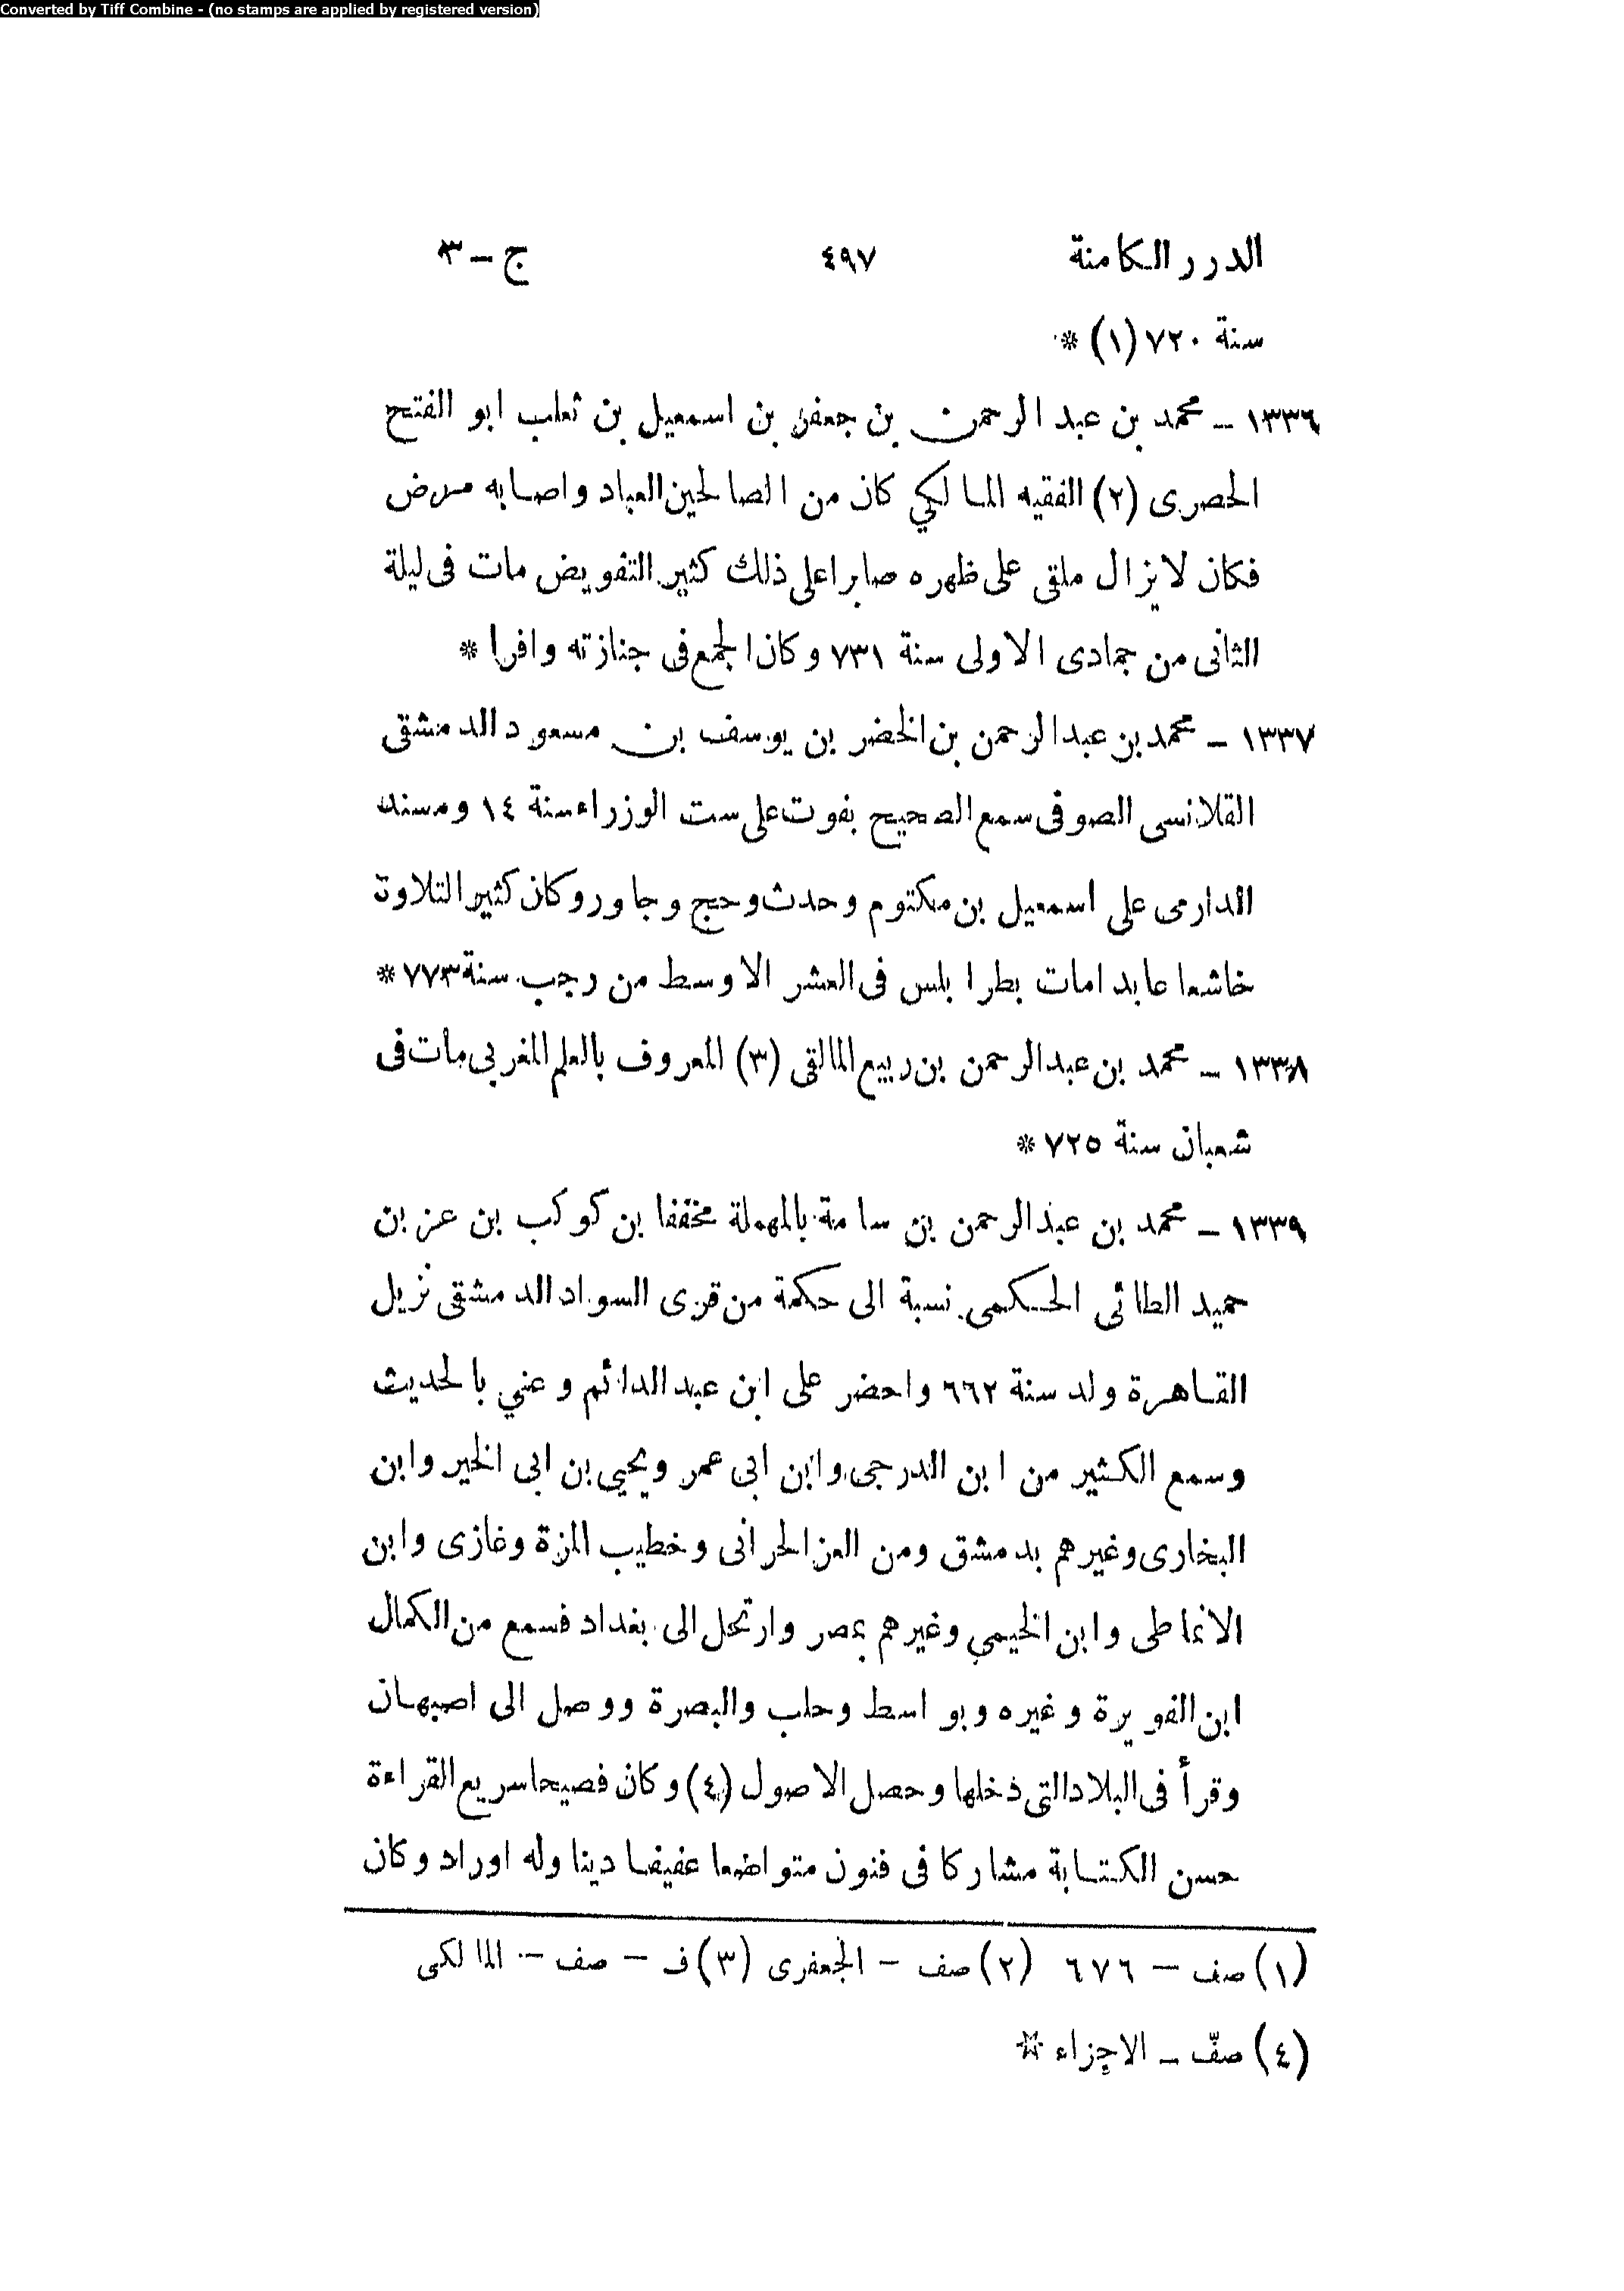 Converted by Tiff Combine - (no stamps are applied by registered version)
الدرر الكامنة ٤٩٧ ج – ٣
سنة ٧٢٠ (١) *
١٣٣٦ – محمد بن عبد الرحمن بن جعفر بن اسمعيل بن ثعلب ابو الفتح
الحصرى (٢) الفقيه المالكي كان من الصالحين العباد واصابه مرض
فكان لا يزال ملقى على ظهره صابرا على ذلك كثير التفويض مات فى ليلة
الثانى من جمادى الاولى سنة ٧٣١ وكان الجمع فى جنازته وافرا *
١٣٣٧ – محمد بن عبد الرحمن بن الخضر بن يوسف بن مسعود الدمشقى
القلانسى الصوفى سمع الصحيح بفوت على ست الوزراء سنة ١٤ ومسند
الدارمى على اسمعيل بن مكتوم وحدث وحج وجاور وكان كثير التلاوة
خاشعا عابدا مات بطرابلس فى العشر الاوسط من رجب سنة ٧٧٣ *
١٣٣٨ – محمد بن عبد الرحمن بن ربيع المالقى (٣) المعروف بالعلم المغربى مات فى
شعبان سنة ٧٢٥ *
١٣٣٩ – محمد بن عبد الرحمن بن سامة بالمهملة مخففا بن كوكب بن عز بن
حميد الطائى الحكمى نسبة الى حكمة من قرى السواد الدمشقى نزيل
القاهرة ولد سنة ٦٦٢ واحضر على ابن عبد الدائم وعني بالحديث
وسمع الكثير من ابن الدرجى وابن ابى عمر ويحيى بن ابى الخير وابن
البخارى وغيرهم بدمشق ومن العز الحرانى وخطيب المزة وغازى وابن
الانماطى وابن الخيمي وغيرهم بمصر وارتحل الى بغداد فسمع من الكمال
ابن الفويرة وغيره وبواسط وحلب والبصرة ووصل الى اصبهان
وقرأ فى البلاد التى دخلها وحصل الاصول (٤) وكان فصيحا سريع القراءة
حسن الكتابة مشاركا فى فنون متواضعا عفيفا دينا وله اوراد وكان
(١) صف – ٦٧٦ (٢) صف – الجعفرى (٣) ف – صف – المالكى
(٤) صف – الاجزاء *